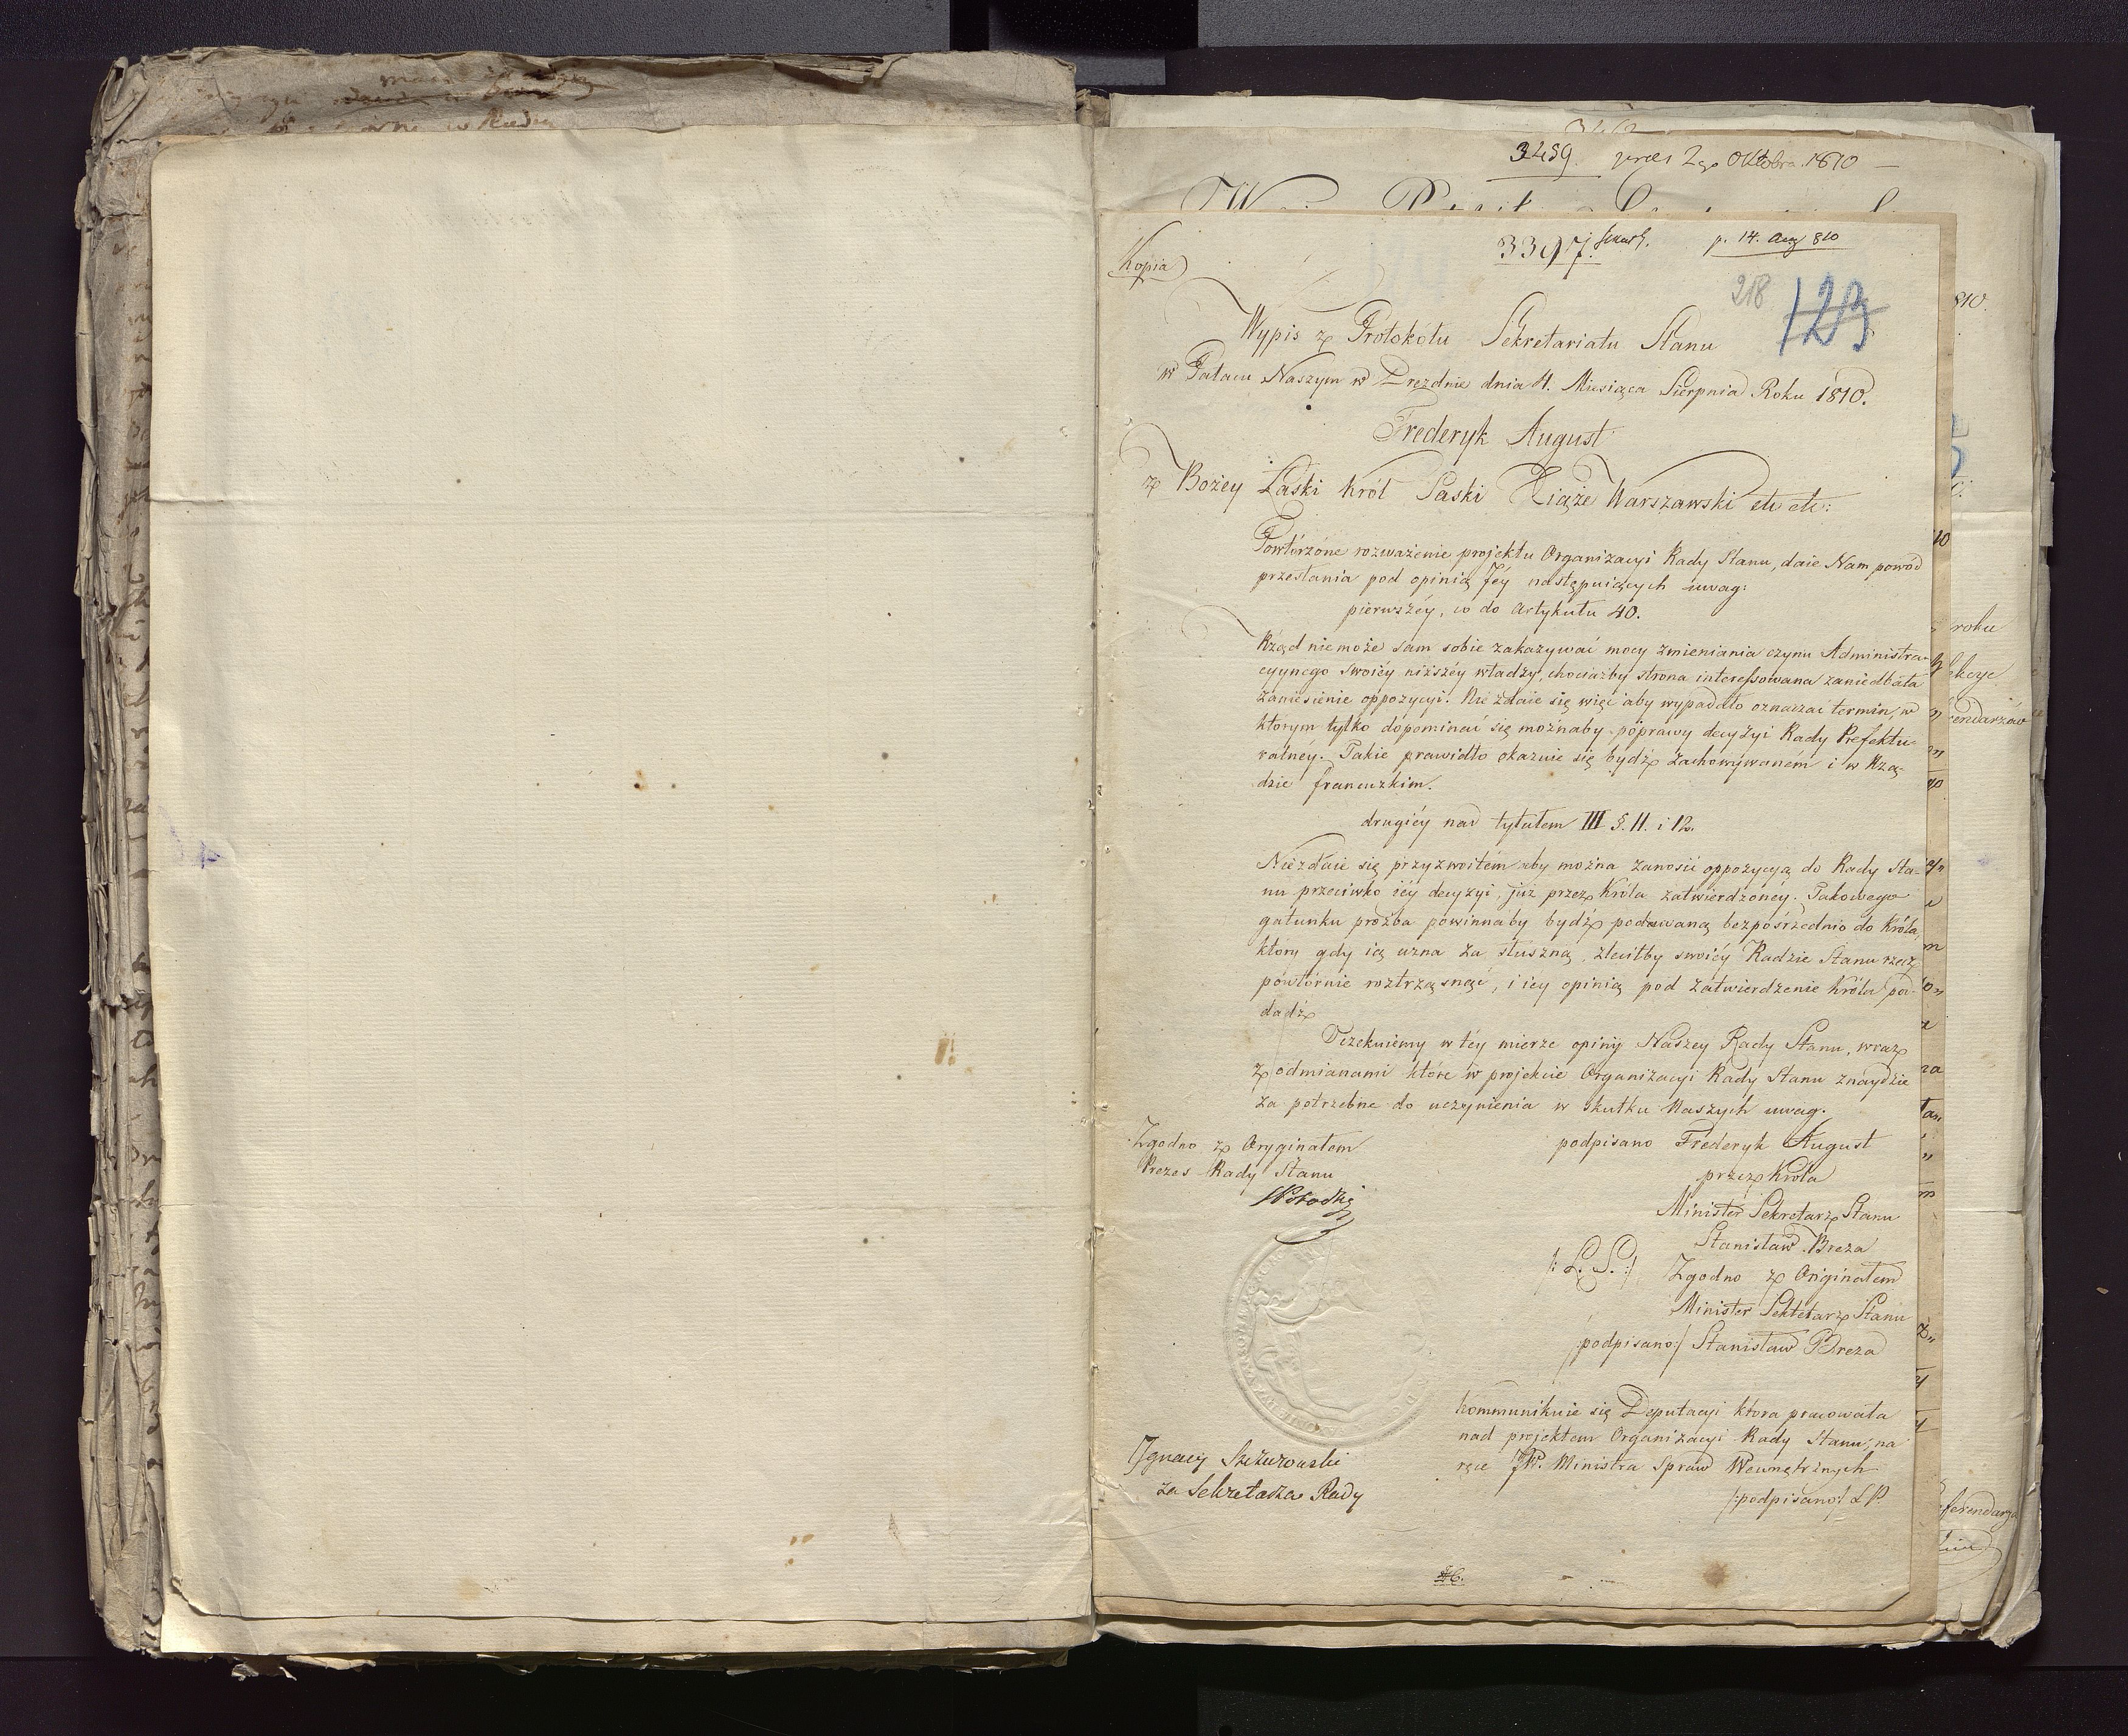 3459. præs 2go Oktobra. 1810 —
3397. p. 14. Aug 810
Kopia
218 123
Wypis z Protokołu Sekretariatu Stanu
w Pałacu Naszym w Dreznie dnia 4. Miesiąca Sierpnia Roku 1810.
Frederyk August
z Bożey Łaski Król Saski Xiąże Warszawski etc etc:
Powtórzone rozważenie projektu Organizacyi Rady Stanu, daie Nam powód
przesłania pod opinią Jéy następuiących uwag:
pierwszéy, co do Artykułu 40.
Rząd niemoże sam sobie zakazywać mocy zmieniania czynu Administra-
cyynego swoiéy niższéy władzy, chociażby strona interessowana zaniedbała
zaniesienie oppozycyi. Nie zdaie się więc aby wypadało oznaczać termin, w
którym tylko dopominać się możnaby poprawy decyzyi Rady Prefektu-
ralnéy. Takie prawidło okazuie się bydź zachowywaném i w Rzą-
dzie francuzkim.
drugiéy nad tytułem III §. 11. i 12.
Niezdaie się przyzwoitém aby można zanosić oppozycyą do Rady Sta-
nu przeciwko iéy decyzyi, już przez Króla zatwierdzonéy. Takowego
gatunku proźba powinnaby bydź podawaną bezpośrzednio do Króla,
który gdy ią uzna za słuszną, zleciłby swoiéy Radzie Stanu rzecz
powtórnie roztrząsnąć, i iey opinią pod zatwierdzenie Króla po-
dadź
Oczekuiemy w téy mierze opinij Naszey Rady Stanu, wraz
z odmianami które w projekcie Organizacyi Rady Stanu znaydzie
za potrzebne do uczynienia w skutku Naszych uwag.
Zgodno z Oryginałem
Prezes Rady Stanu
podpisano Frederyk August
przez Króla
Minister Sekretarz Stanu
Stanisław Breza
/: L. S. :/ Zgodno z Originałem
Minister Sekretarz Stanu
/podpisano:/ Stanisław Breza
Kommunikuie się Deputacyi która pracowała
nad projektem Organizacyi Rady Stanu, na
ręce JW. Ministra Spraw Wewnętrznych
/:podpisano:/ S P.
Ignacy Szczurowski
za Sekretarza Rady